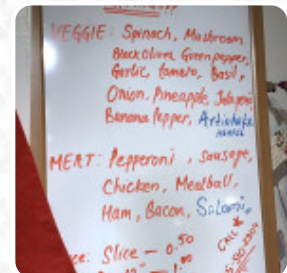 VEGGIE: Spinach, Mushroom,
Black olive, Green pepper,
Garlic, tomato, Basil,
Onion, Pineapple, Jalapeno
Banana Pepper, Artichoke
MEAT: Pepperoni, sausage,
Chicken, Meatball,
Ham, Bacon, Salami,
CALL
Slice - 0.50